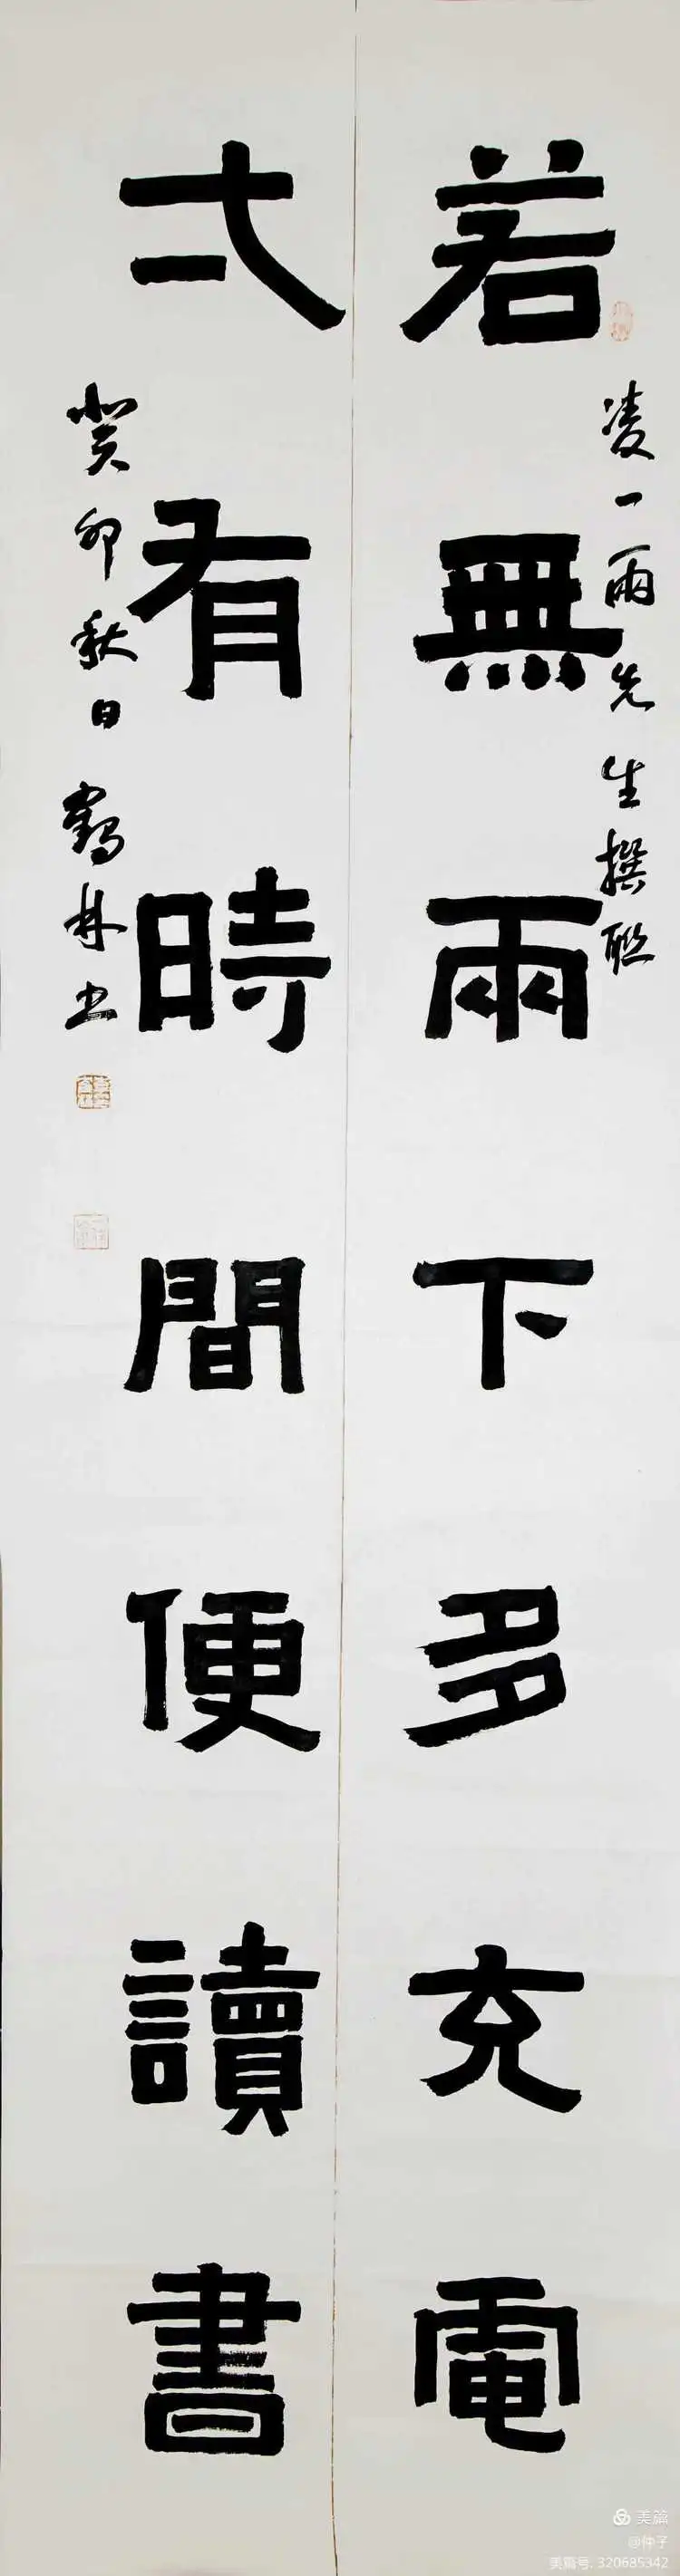 若無雨下多充電
弌有時間便讀書
凌一雨先生撰联
癸卯秋日鶴林书
美篇
@仲子
美篇号: 320685342